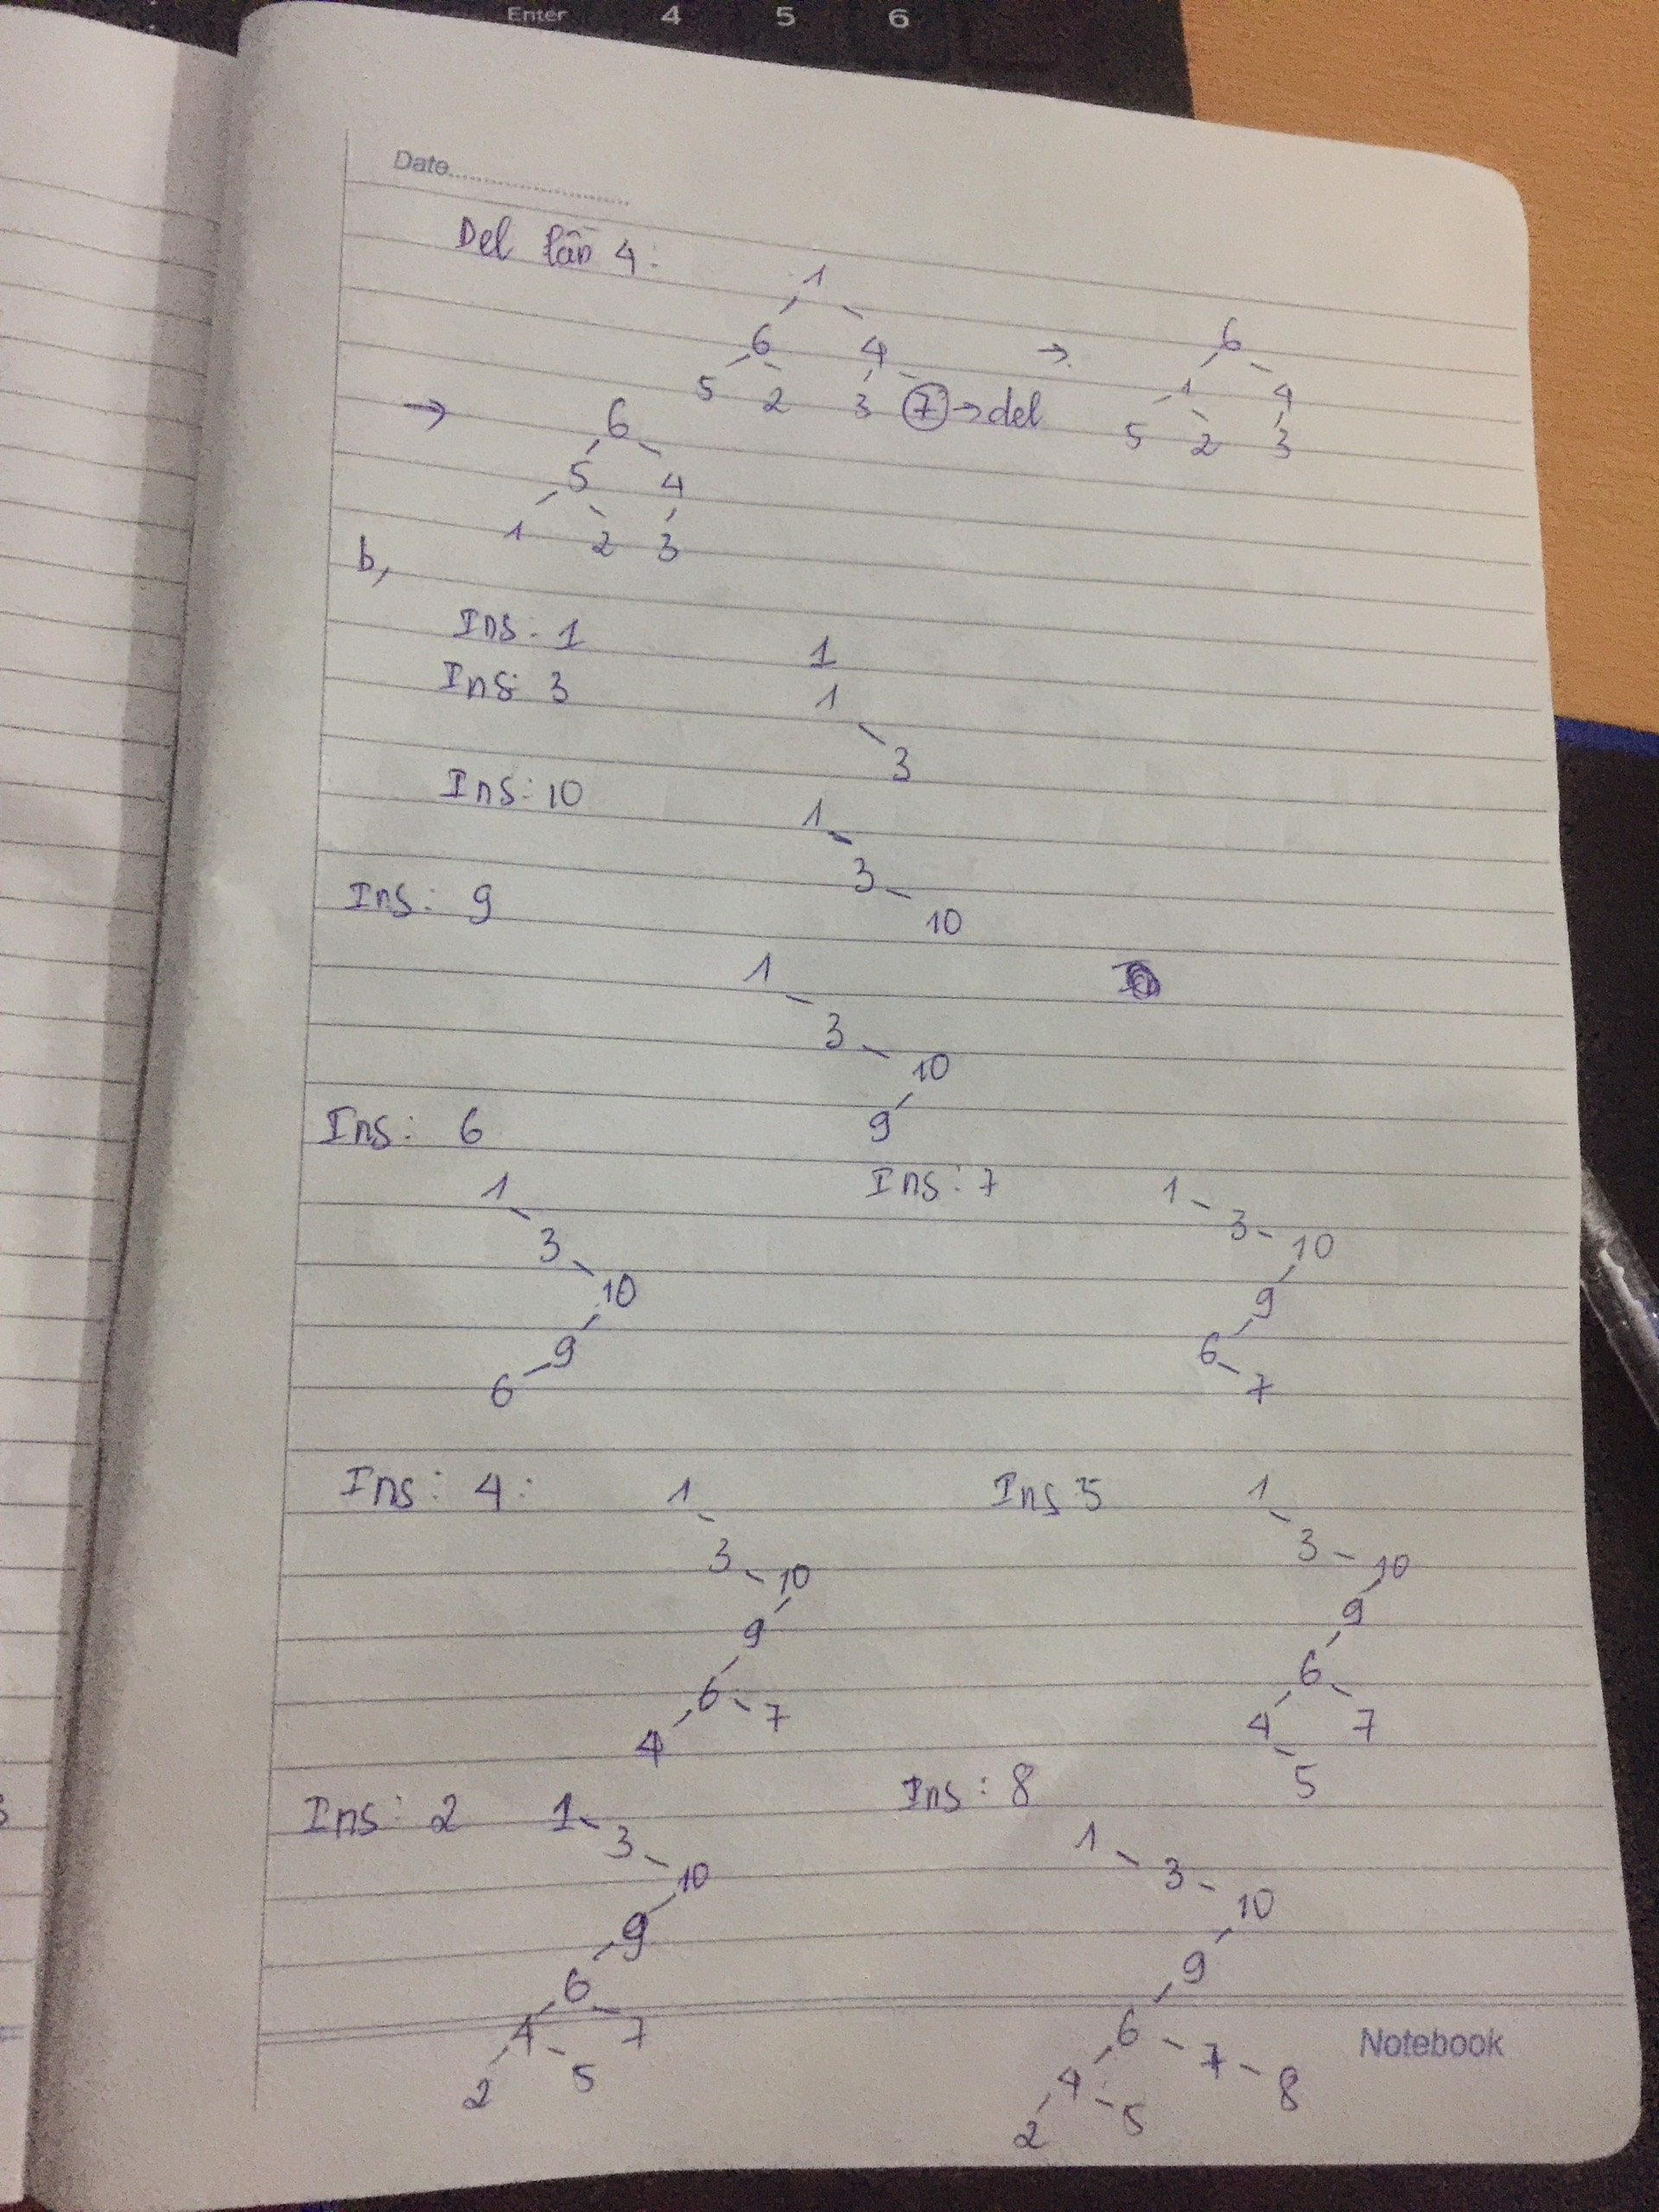 Enter 4 5 6
Date
Del lần 4:
1
6 4 → 6
5 2 3 7 → del 1 4
5 2 3
→ 6
5 4
1 2 3
b,
Ins: 1 1
Ins: 3 1
3
Ins: 10 1
3
10
Ins: 9
1
3
10
9
Ins: 6
1
3
10
9
6
Ins: 7
1
3
10
9
6
7
Ins: 4:
1
3
10
9
6
7
4
Ins 5
1
3
10
9
6
4 7
5
Ins: 2
1
3
10
9
6
4 7
2 5
Ins: 8
1
3
10
9
6
4 7 8
2 5
Notebook